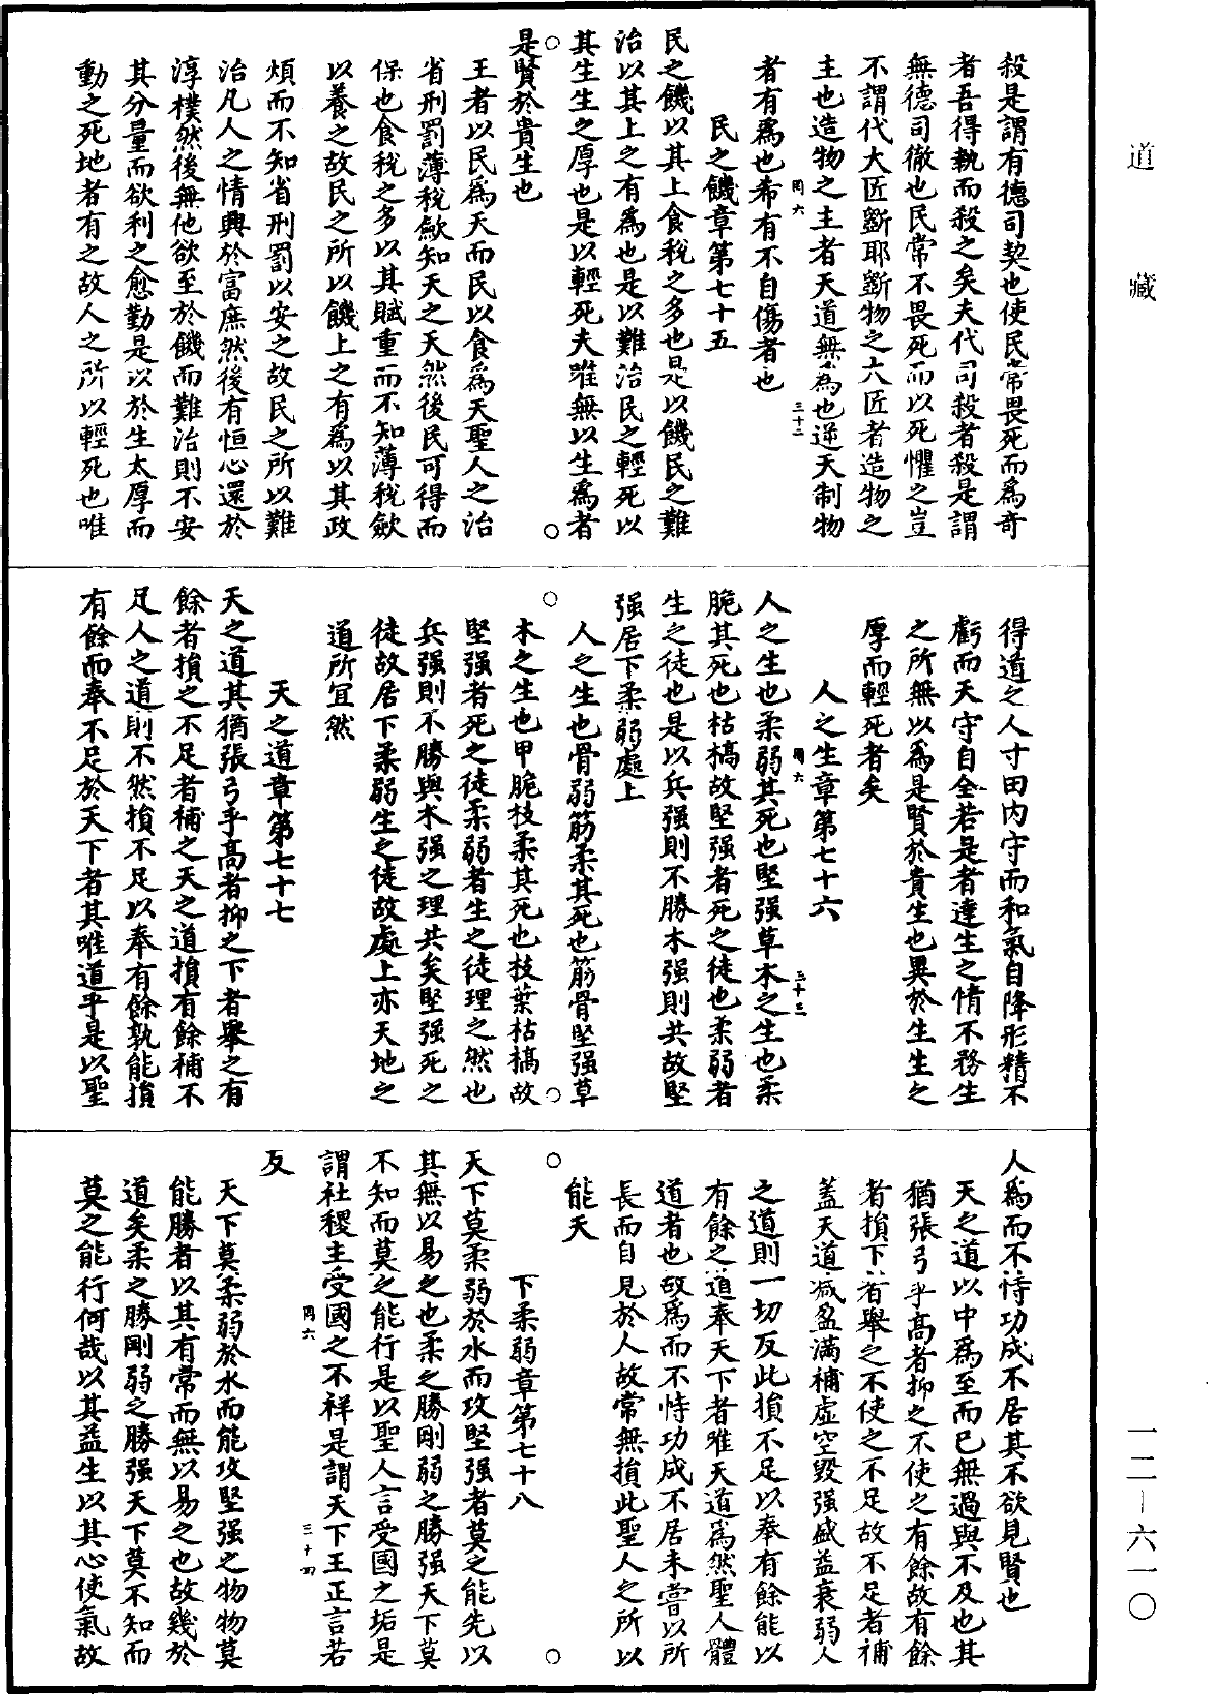 道藏
殺是謂有德司契也使民常畏死而爲奇
者吾得執而殺之矣夫代司殺者殺是謂
無德司徹也民常不畏死而以死懼之豈
不謂代大匠斲耶斲物之大匠者造物之
主也造物之主者天道無爲也逆天制物
罔六
三十二
者有爲也希有不自傷者也
民之饑章第七十五
民之饑以其上食稅之多也是以饑民之難
治以其上之有爲也是以難治民之輕死以
其生生之厚也是以輕死夫唯無以生爲者
是賢於貴生也
王者以民爲天而民以食爲天聖人之治
省刑罰薄稅歛知天之天然後民可得而
保也食稅之多以其賦重而不知薄稅歛
以養之故民之所以饑上之有爲以其政
煩而不知省刑罰以安之故民之所以難
治凡人之情興於富庶然後有恒心還於
淳樸然後無他欲至於饑而難治則不安
其分量而欲利之愈勤是以於生太厚而
動之死地者有之故人之所以輕死也唯
得道之人寸田內守而和氣自降形精不
虧而天守自全若是者達生之情不務生
之所無以爲是賢於貴生也異於生生之
厚而輕死者矣
人之生章第七十六
罔六
三十三
人之生也柔弱其死也堅强草木之生也柔
脆其死也枯槁故堅强者死之徒也柔弱者
生之徒也是以兵强則不勝木强則共故堅
强居下柔弱處上
人之生也骨弱筋柔其死也筋骨堅强草
木之生也甲脆枝柔其死也枝葉枯槁故
堅强者死之徒柔弱者生之徒理之然也
兵强則不勝與木强之理共矣堅强死之
徒故居下柔弱生之徒故處上亦天地之
道所宜然
天之道章第七十七
天之道其猶張弓乎高者抑之下者舉之有
餘者損之不足者補之天之道損有餘補不
足人之道則不然損不足以奉有餘孰能損
有餘而奉不足於天下者其唯道乎是以聖
人爲而不恃功成不居其不欲見賢也
天之道以中爲至而已無過與不及也其
猶張弓乎高者抑之不使之有餘故有餘
者損下者舉之不使之不足故不足者補
蓋天道減盈滿補虛空毀强盛益衰弱人
之道則一切反此損不足以奉有餘能以
有餘之道奉天下者唯天道爲然聖人體
道者也故爲而不恃功成不居未嘗以所
長而自見於人故常無損此聖人之所以
能天
下柔弱章第七十八
天下莫柔弱於水而攻堅强者莫之能先以
其無以易之也柔之勝剛弱之勝强天下莫
不知而莫之能行是以聖人言受國之垢是
謂社稷主受國之不祥是謂天下王正言若
罔六
三十四
反
天下莫柔弱於水而能攻堅强之物物莫
能勝者以其有常而無以易之也故幾於
道矣柔之勝剛弱之勝强天下莫不知而
莫之能行何哉以其益生以其心使氣故
一二—六一〇